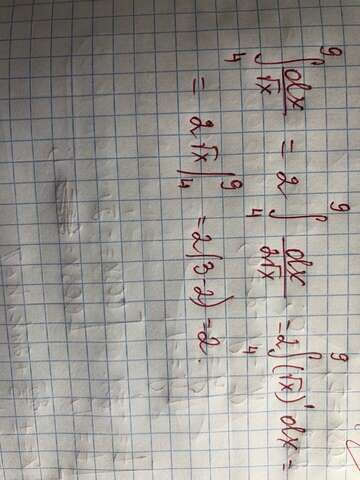 ∫₄⁹ dx/√x = 2 ∫₄⁹ dx/2√x = 2 ∫₄⁹ (√x)' dx =
= 2√x |₄⁹ = 2(3-2) = 2.